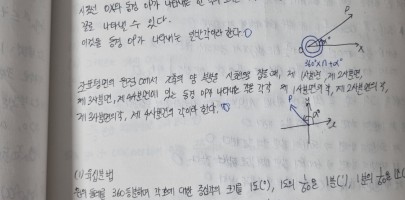 시초선 OX와 동경 OP가 나타내는
같로 나타낼 수 있다.
이것을 동경 OP가 나타내는 일반각이라 한다
P
X
360°×n+α°
좌표평면의 원점 O에서 x축의 양의 부분을 시초선으로 잡을 때, 제 1사분면, 제 2사분면,
제 3사분면, 제 4사분면에 있는 동경 OP가 나타내는 각을 각각 제 1사분면의 각, 제 2사분면의 각,
제 3사분면의 각, 제 4사분면의 각이라 한다.
P
x
(1) 육십분법
원의 둘레를 360등분하여 각 호에 대한 중심각의 크기를 1도(°), 1도의 1/60을 1분('), 1분의 1/60을 1초